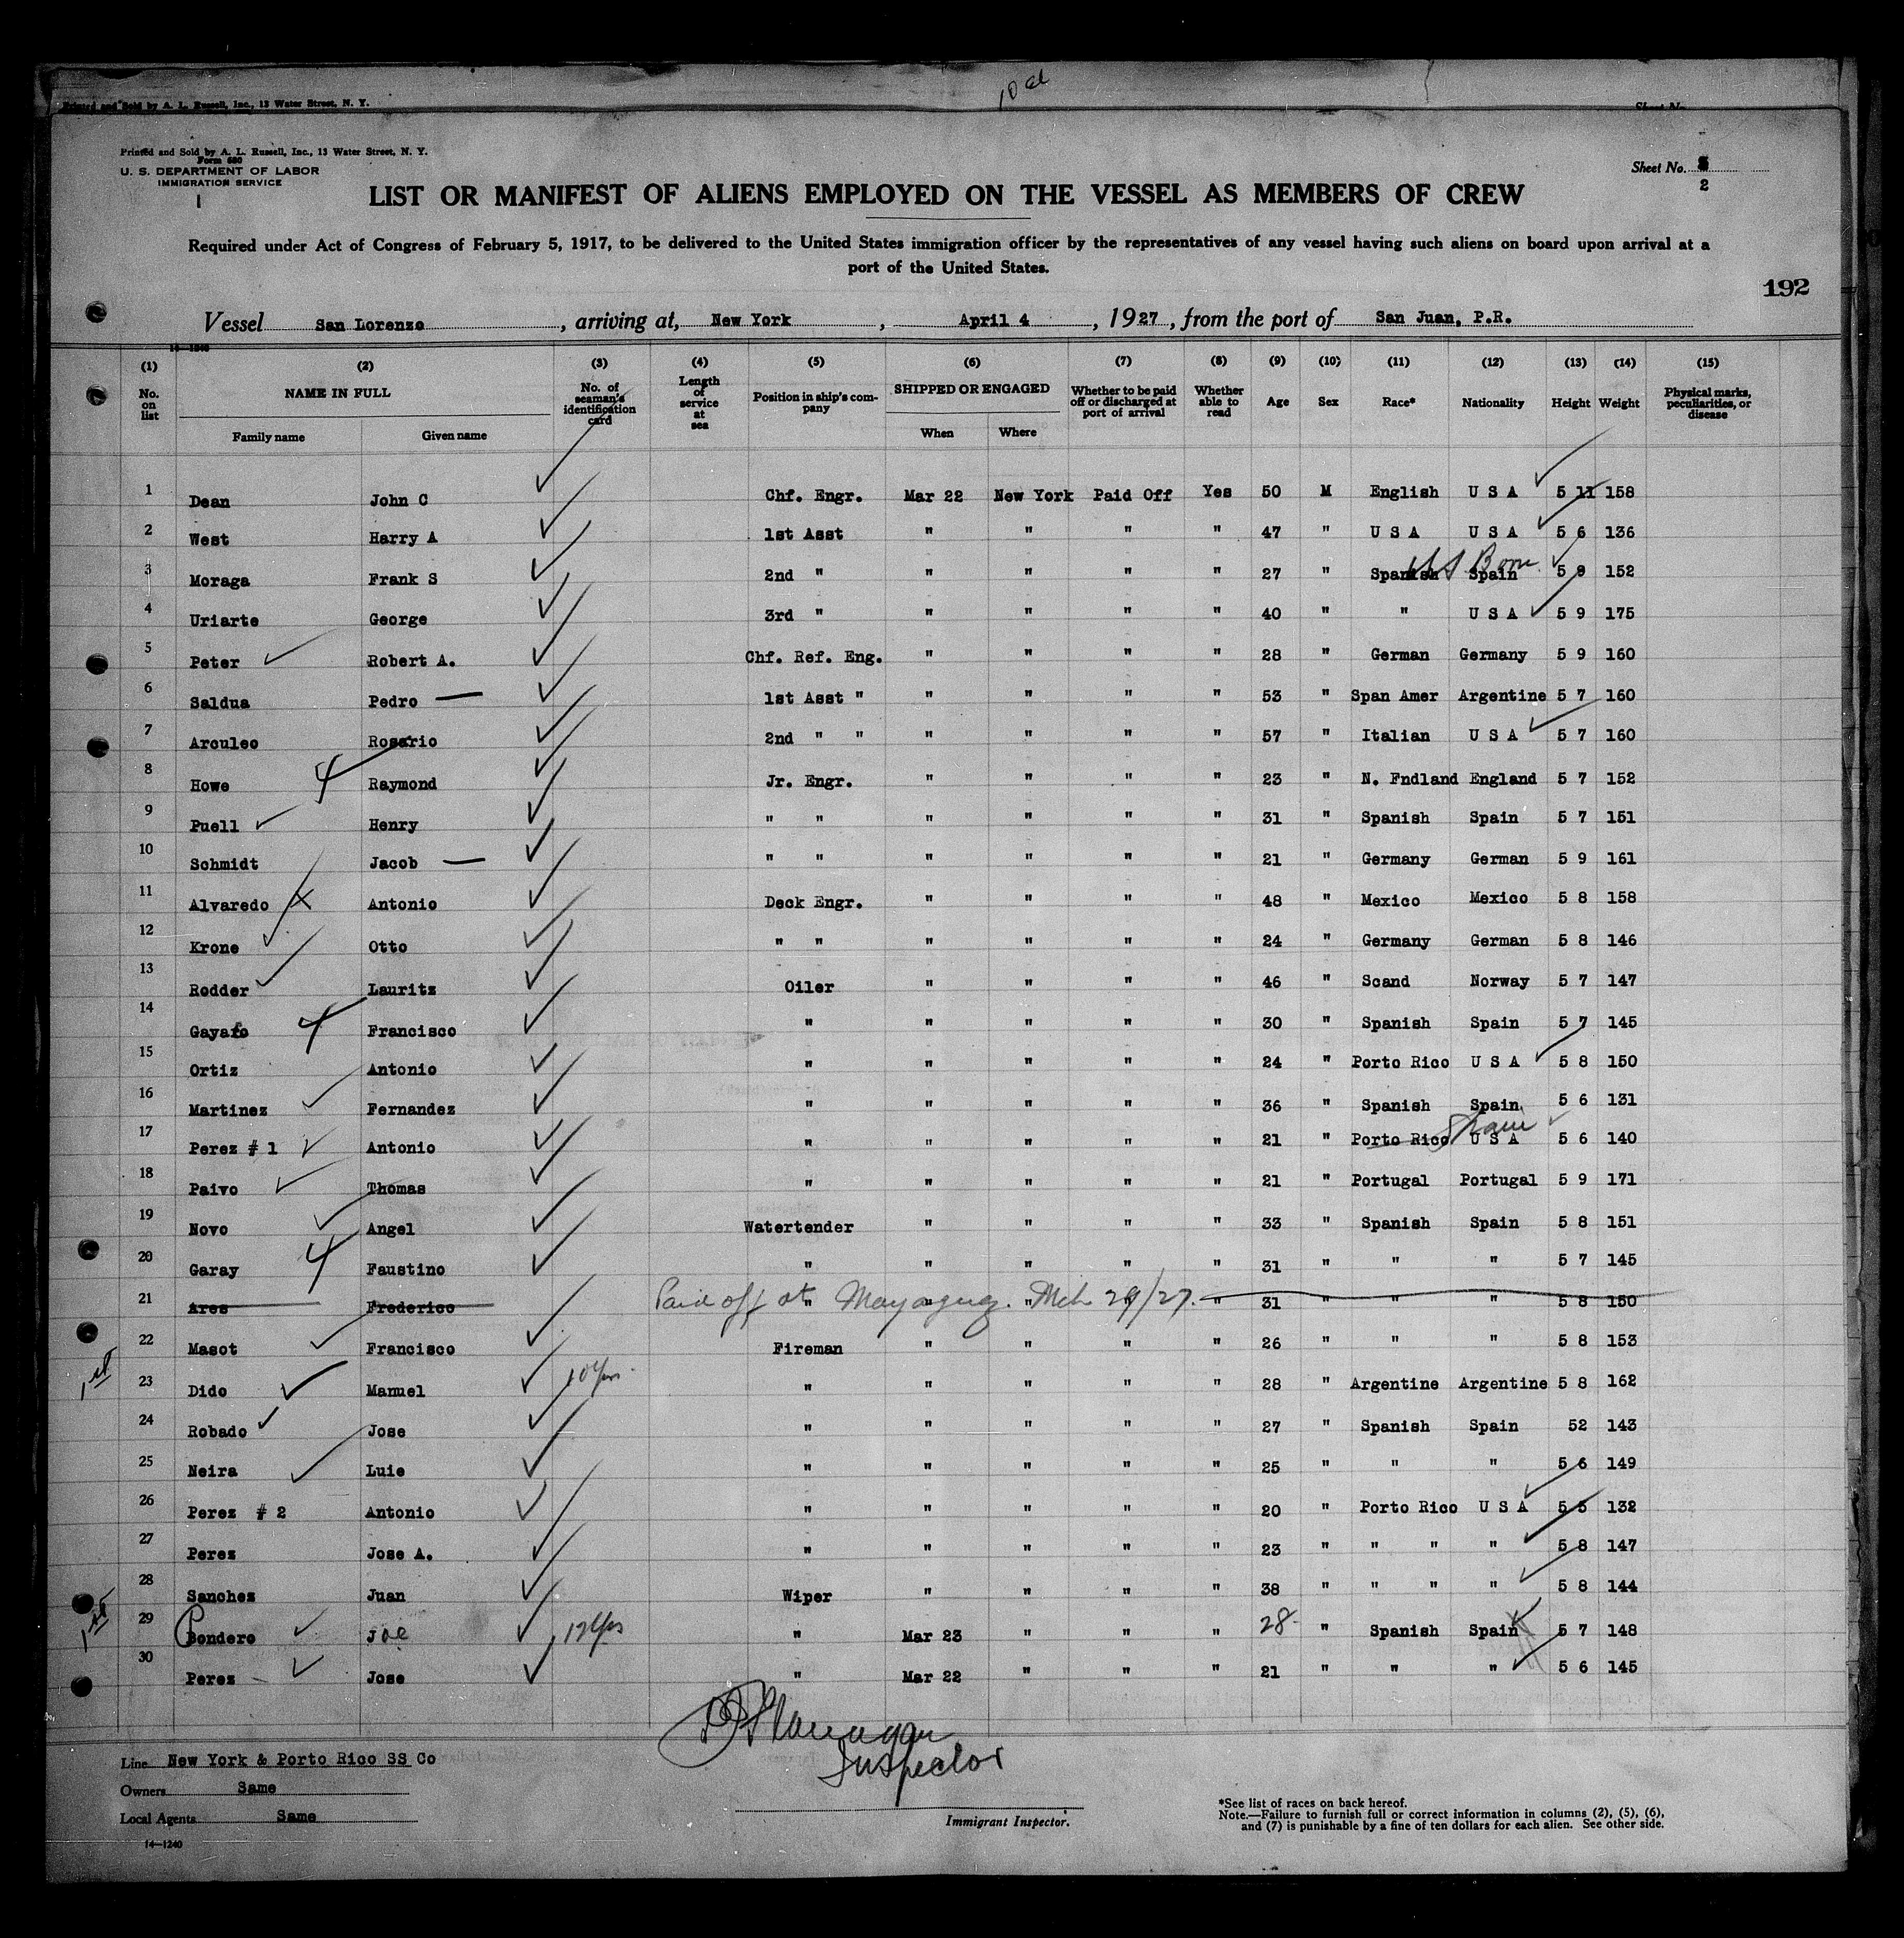 Printed and Sold by A. L. Russell, Inc., 13 Water Street, N. Y.
10 al
Sheet No.
Printed and Sold by A. L. Russell, Inc., 13 Water Street, N. Y.
Form 680
U. S. DEPARTMENT OF LABOR
IMMIGRATION SERVICE
1
Sheet No. 2
LIST OR MANIFEST OF ALIENS EMPLOYED ON THE VESSEL AS MEMBERS OF CREW
Required under Act of Congress of February 5, 1917, to be delivered to the United States immigration officer by the representatives of any vessel having such aliens on board upon arrival at a
port of the United States.
192
Vessel San Lorenzo, arriving at, New York, April 4, 1927, from the port of San Juan, P.R.
14—1240
(1) (2) (3) (4) (5) (6) (7) (8) (9) (10) (11) (12) (13) (14) (15)
No. on list NAME IN FULL No. of seaman's identification card Length of service at sea Position in ship's company SHIPPED OR ENGAGED Whether to be paid off or discharged at port of arrival Whether able to read Age Sex Race* Nationality Height Weight Physical marks, peculiarities, or disease
Family name Given name When Where
1 Dean John C Chf. Engr. Mar 22 New York Paid Off Yes 50 M English U S A 5 11 158
2 West Harry A 1st Asst " " " " 47 " U S A U S A 5 6 136
3 Moraga Frank S 2nd " " " " " 27 " Spanish US Born Spain 5 9 152
4 Uriarte George 3rd " " " " " 40 " " U S A 5 9 175
5 Peter Robert A. Chf. Ref. Eng. " " " " 28 " German Germany 5 9 160
6 Saldua Pedro — 1st Asst " " " " " 53 " Span Amer Argentine 5 7 160
7 Arculeo Rosario 2nd " " " " " " 57 " Italian U S A 5 7 160
8 Howe 4 Raymond Jr. Engr. " " " " 23 " N. Fndland England 5 7 152
9 Puell Henry " " " " " " 31 " Spanish Spain 5 7 151
10 Schmidt Jacob — " " " " " " 21 " Germany German 5 9 161
11 Alvaredo x Antonio Deck Engr. " " " " 48 " Mexico Mexico 5 8 158
12 Krone Otto " " " " " " 24 " Germany German 5 8 146
13 Rodder Lauritz Oiler " " " " 46 " Scand Norway 5 7 147
14 Gayafo 4 Francisco " " " " " 30 " Spanish Spain 5 7 145
15 Ortiz Antonio " " " " " 24 " Porto Rico U S A 5 8 150
16 Martinez Fernandez " " " " " 36 " Spanish Spain 5 6 131
17 Perez # 1 Antonio " " " " " 21 " Porto Rico Spain U S A 5 6 140
18 Paivo Thomas " " " " " 21 " Portugal Portugal 5 9 171
19 Novo Angel Watertender " " " " 33 " Spanish Spain 5 8 151
20 Garay 4 Faustino " " " " " 31 " " " 5 7 145
21 Ares Frederico Paid off at Mayaguez. Mch 29/27. " " " " " 31 " " " 5 8 150
22 Masot Francisco Fireman " " " " 26 " " " 5 8 153
1st 23 Dido Manuel 10 Yrs. " " " " " 28 " Argentine Argentine 5 8 162
24 Robado Jose " " " " " 27 " Spanish Spain 52 143
25 Neira Luie " " " " " 25 " " " 5 6 149
26 Perez # 2 Antonio " " " " " 20 " Porto Rico U S A 5 5 132
27 Perez Jose A. " " " " " 23 " " " " 5 8 147
28 Sanchez Juan Wiper " " " " 38 " " " " 5 8 144
1st 29 Bondero Joe 12 Yrs " Mar 23 " " " 28 " Spanish Spain 5 7 148
30 Perez Jose " Mar 22 " " " 21 " " " 5 6 145
Inspector
Line New York & Porto Rico SS Co
Owners Same
Local Agents Same
14—1240
Immigrant Inspector.
*See list of races on back hereof.
Note.—Failure to furnish full or correct information in columns (2), (5), (6),
and (7) is punishable by a fine of ten dollars for each alien. See other side.